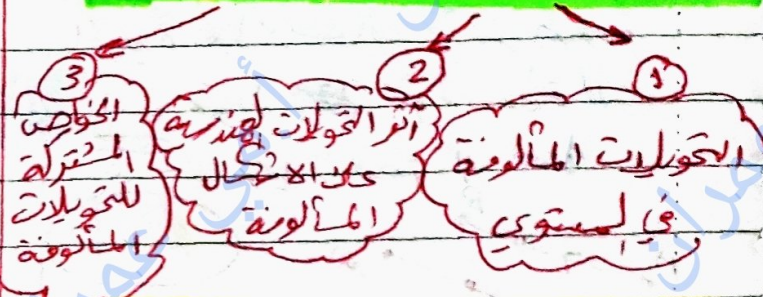 1
التحويلات المألوفة
في المستوي
2
أثر التحولات الهندسية
على الأشكال
المألوفة
3
الخواص
المشتركة
للتحويلات
المألوفة